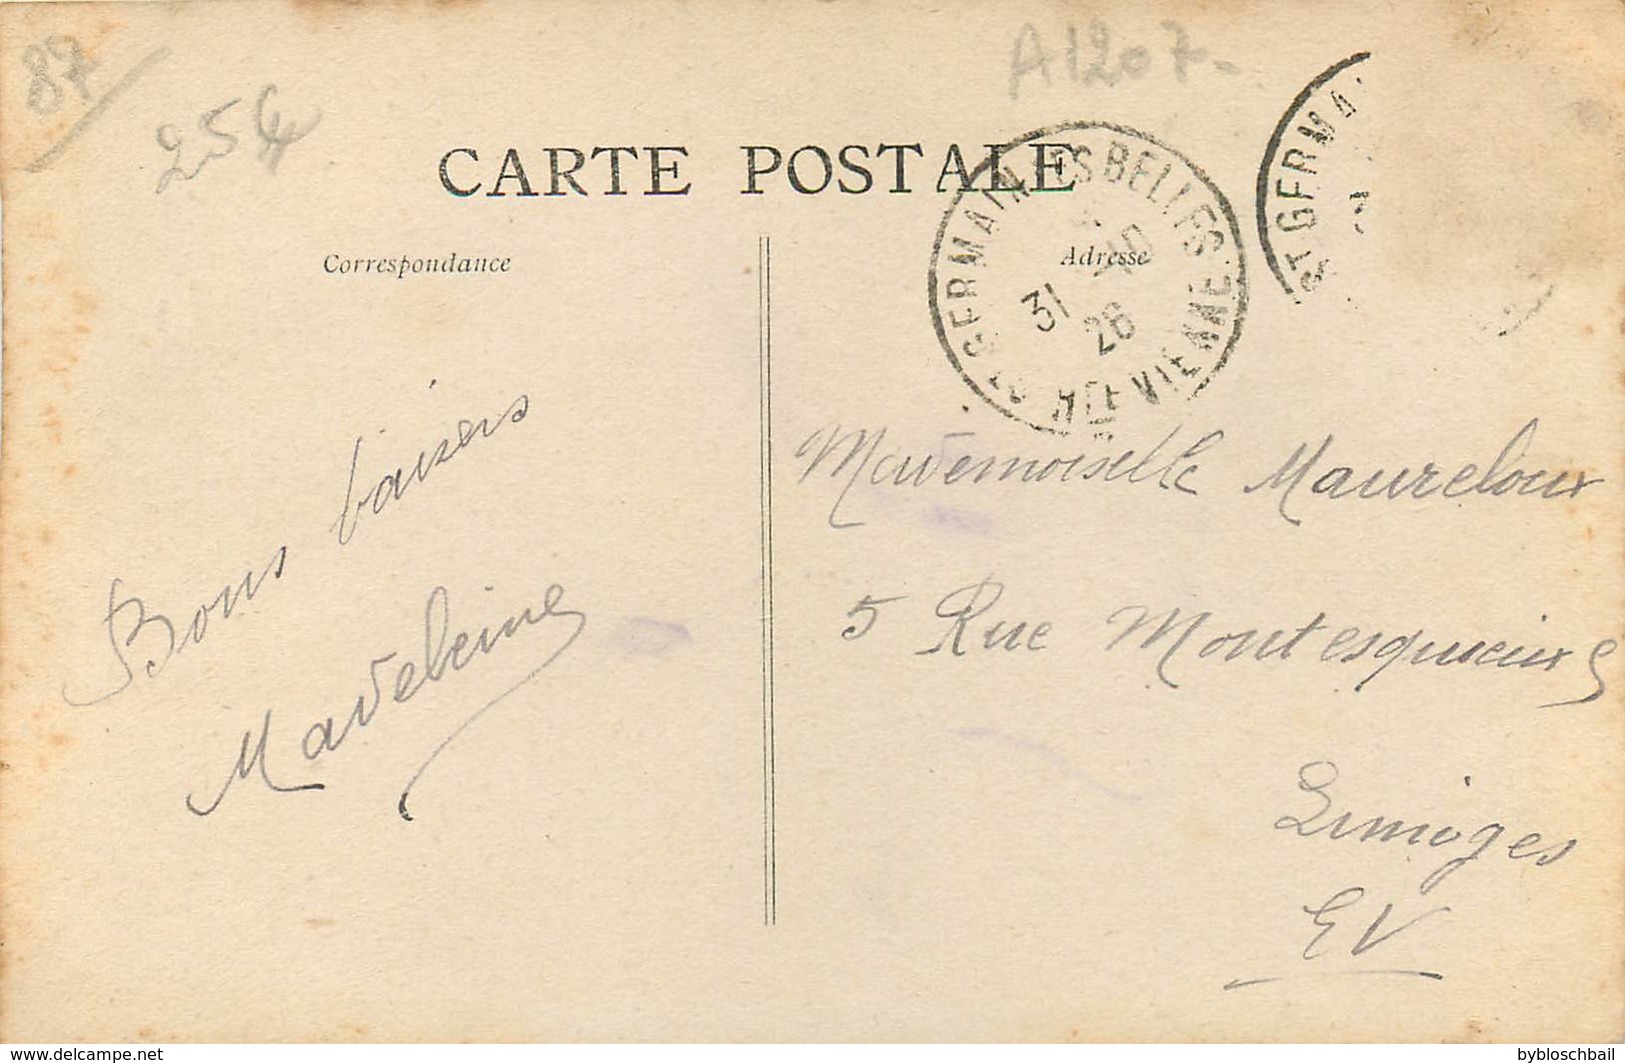 87
25€
A1207-
CARTE POSTALE
Correspondance
Adresse
ST GERMAIN LES BELLES
31 -10
26
HTE VIENNE
ST GERMA
Bons baisers
Madeleine
Mademoiselle Maureloux
5 Rue Montesquieux
Limoges
EV
www.delcampe.net
bybloschbail